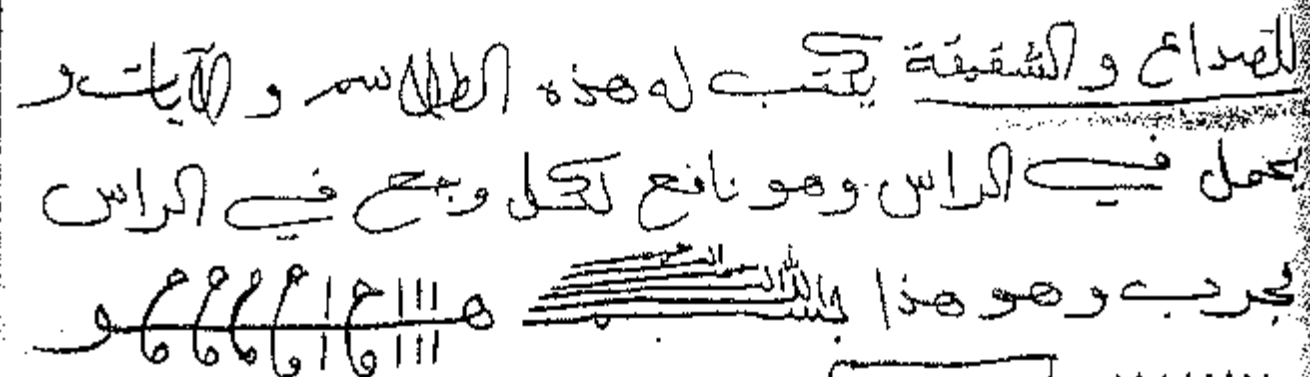 للصداع والشقيقة يكتب له هذه الطلاسم والآيات و
يحمل في الراس وهو نافع لكل وجع في الراس
مجرب وهو هذا